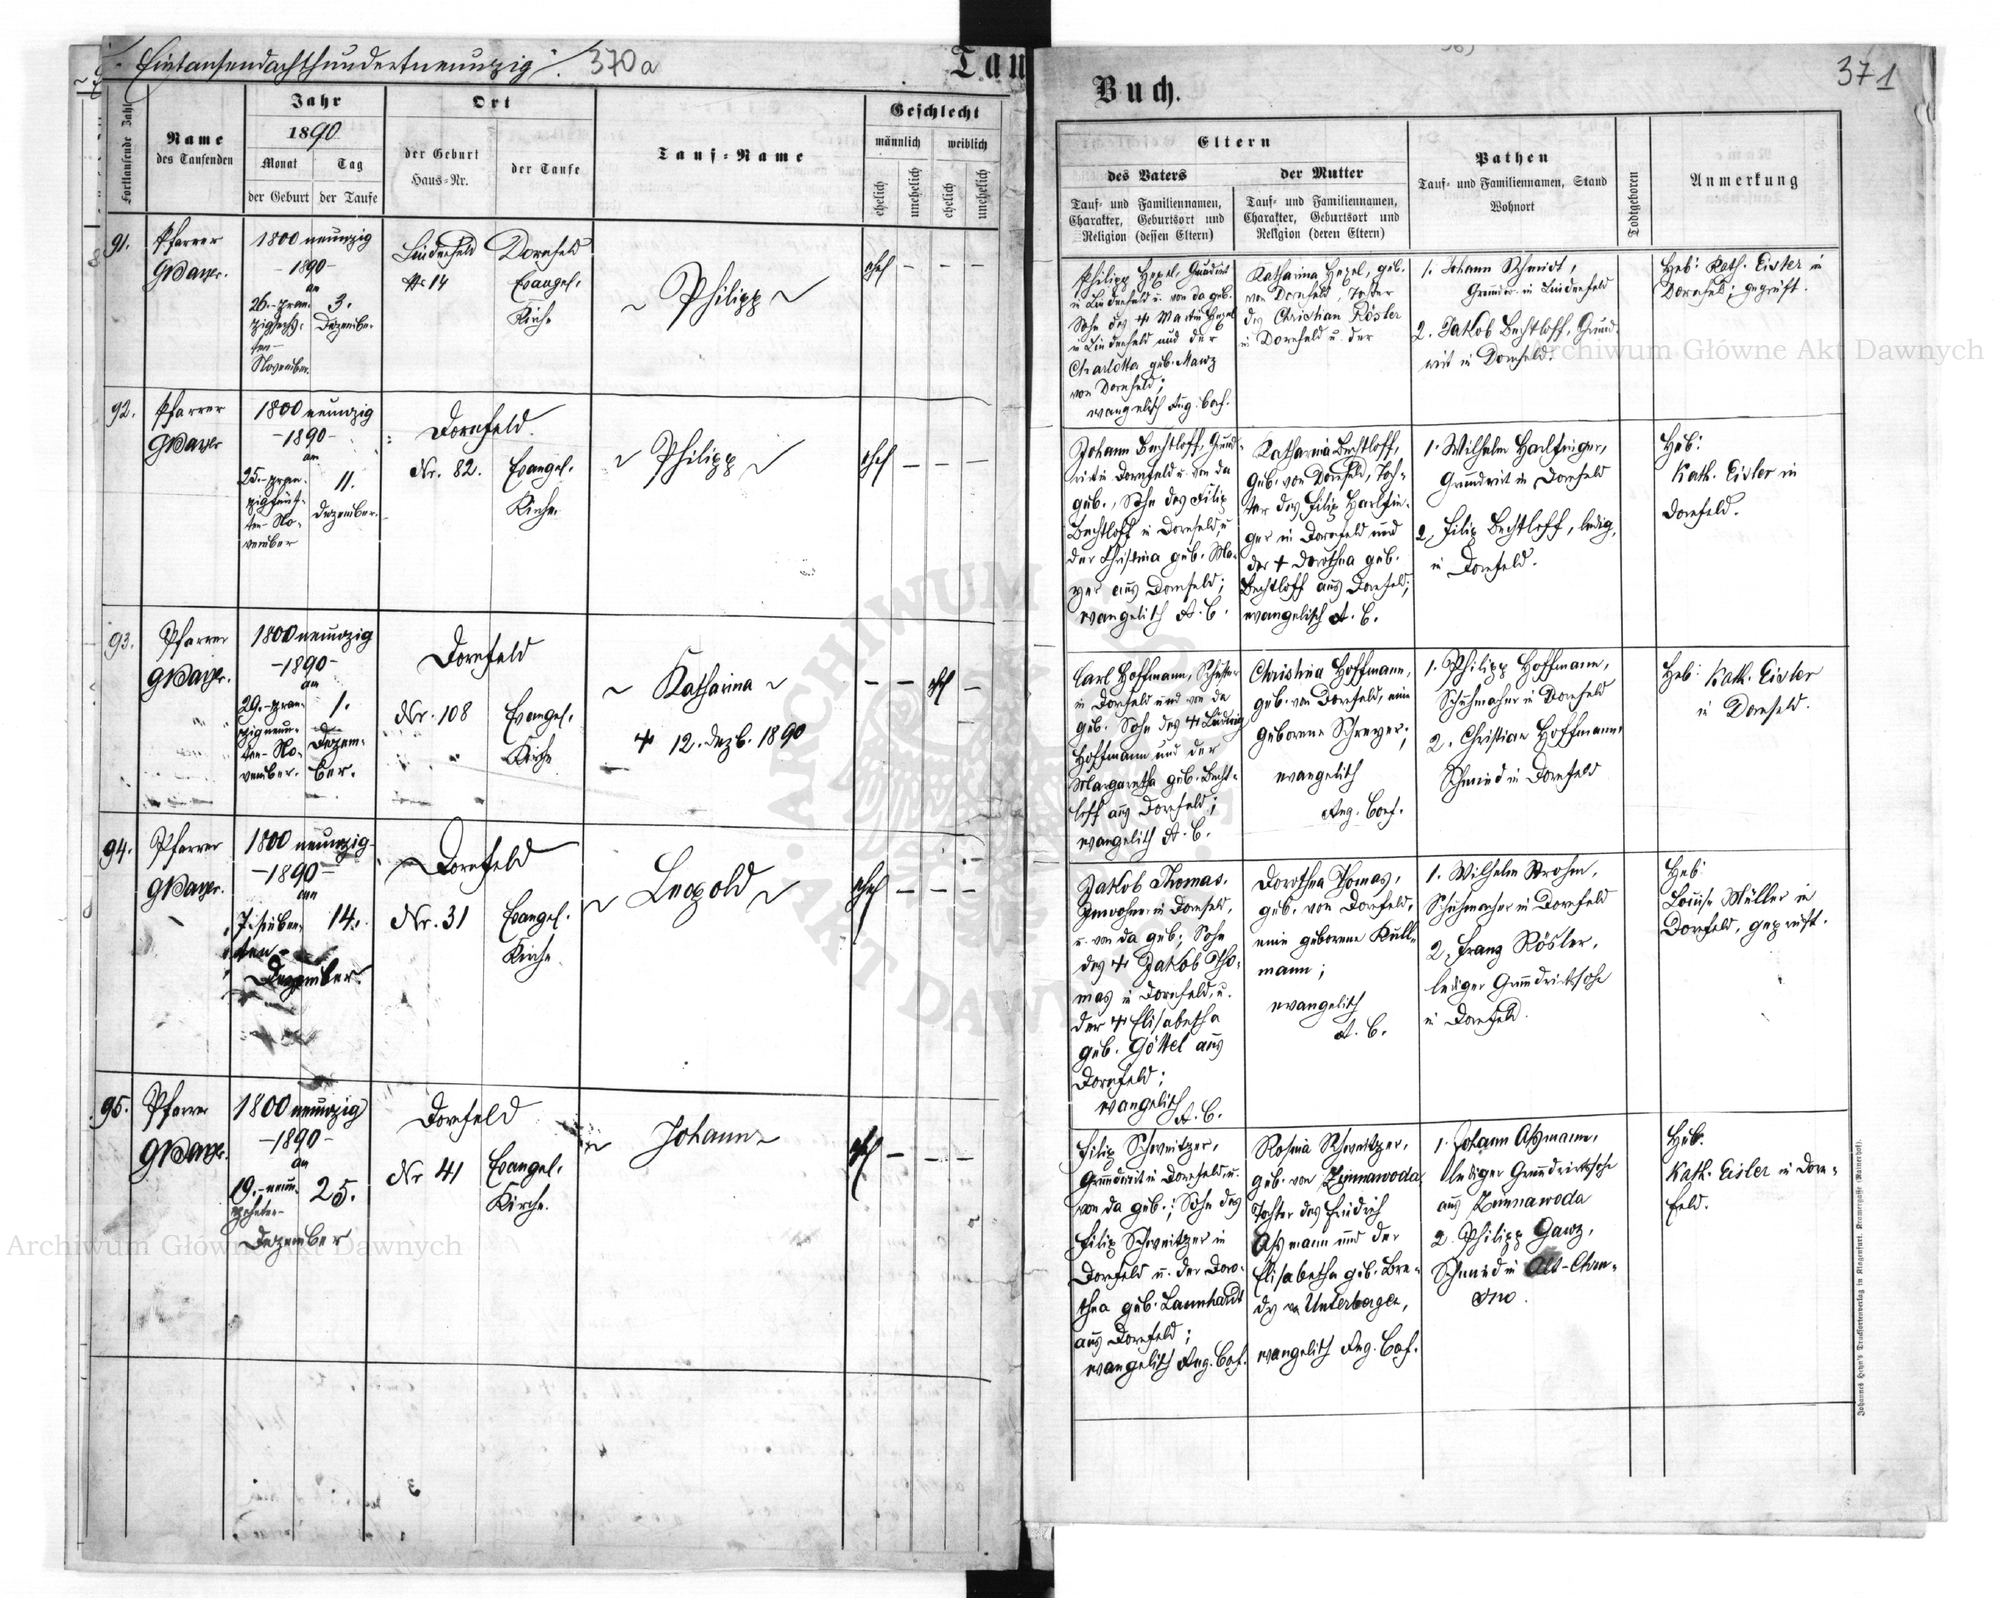 Eintausendachthundertneunzig. 370a
Tau
Fortlaufende Zahl
Name
des Taufenden
Jahr
1890.
Monat
Tag
der Geburt
der Taufe
Ort
der Geburt
Haus-Nr.
der Taufe
Tauf-Name
Geschlecht
männlich
weiblich
ehelich
unehelich
ehelich
unehelich
91.
Pfarrer
1800 neunzig
-1890-
am
26.-zwan-
zigsechs-
ten-
November.
3.
Dezember
Lindenfeld
Nr 14
Dornfeld
Evangel.
Kirche
Philipp
ehel
92.
Pfarrer
1800 neunzig
-1890-
am
25.-zwan-
zigfünf-
ten No-
vember
11.
Dezember.
Dornfeld.
Nr. 82.
Evangel.
Kirche.
Philipp
ehel
93.
Pfarrer
1800 neunzig
-1890-
am
29.-zwan-
zigneun-
ten-No-
vember.
1.
Dezem-
ber.
Dornfeld
Nr. 108
Evangel.
Kirche
Katharina
+ 12. Dezb. 1890
ehel
94.
Pfarrer
1800 neunzig
-1890-
am
7. sieben-
ten-
Dezember.
14.
Dornfeld
Nr. 31
Evangel.
Kirche
Leopold
ehel
95.
Pfarrer
1800 neunzig
-1890-
am
19.-neun-
zehnten-
Dezember
25.
Dornfeld
Nr 41
Evangel.
Kirche.
Johann
ehel
371
Buch.
Eltern
des Vaters
Tauf- und Familiennamen,
Charakter, Geburtsort und
Religion (dessen Eltern)
der Mutter
Tauf- und Familiennamen,
Charakter, Geburtsort und
Religion (deren Eltern)
Pathen
Tauf- und Familiennamen, Stand
Wohnort
Todtgeboren
Anmerkung
Philipp Hexel, Grundwirt
in Lindenfeld u. von da geb.
Sohn des + Martin Hexel
in Lindenfeld und der
Charlotta geb. Manz
von Dornfeld;
evangelisch Aug. Conf.
Katharina Hexel, geb.
von Dornfeld, Tochter
des Christian Rösler
in Dornfeld u. der
1. Johann Schmidt,
Grundw. in Lindenfeld
2. Jakob Bechtloff, Grund-
wirt in Dornfeld.
Heb: Kath. Eisler in
Dornfeld; geprüft.
Johann Bechtloff, Grund-
wirt in Dornfeld u. von da
geb., Sohn des Filip
Bechtloff in Dornfeld, u
der Christina geb. Ma-
yer aus Dornfeld;
evangelisch A. C.
Katharina Bechtloff,
geb. von Dornfeld, Toch-
ter des Filip Harlfin-
ger in Dornfeld und
der + Dorothea geb.
Bechtloff aus Dornfeld;
evangelisch A. C.
1. Wilhelm Harlfinger,
Grundwirt in Dornfeld
2. Filip Bechtloff, ledig,
in Dornfeld.
Heb:
Kath. Eisler in
Dornfeld.
Carl Hoffmann,
in Dornfeld und von da
geb. Sohn des + Ludwig
Hoffmann und der
Margaretha geb. Becht-
loff aus Dornfeld;
evangelisch A. C.
Christina Hoffmann,
geb. von Dornfeld, eine
geborene Schreyer;
evangelisch
Aug. Conf.
1. Philipp Hoffmann,
Schuhmacher in Dornfeld
2. Christian Hoffmann
Schmied in Dornfeld
Heb: Kath. Eisler
in Dornfeld.
Jakob Thomas,
Inwohner in Dornfeld,
u. von da geb; Sohn
des + Jakob Tho-
mas in Dornfeld, u.
der + Elisabetha
geb. Göttel aus
Dornfeld;
evangelisch
A. C.
Dorothea Thomas,
geb. von Dornfeld,
eine geborene Kull-
mann;
evangelisch
A. C.
1. Wilhelm Strohm,
Schuhmacher in Dornfeld
2. Franz Rösler,
lediger Grundwirtssohn
in Dornfeld.
Heb:
Louise Müller in
Dornfeld, geprüft.
Filip Schweitzer,
Grundwirt in Dornfeld, u.
von da geb.; Sohn des
Filip Schweitzer in
Dornfeld u. der Doro-
thea geb. Launhardt
aus Dornfeld;
evangelisch Aug. Conf.
Rosina Schweitzer,
geb. von Zimnawoda,
Tochter des Friedrich
Aßmann und der
Elisabetha geb. Bre-
dy von Unterbergen,
evangelisch Aug. Conf.
1. Johann Aßmann,
lediger Grundwirtssohn
aus Zimnawoda
2. Philipp Ganz,
Schmied in Alt-Chru-
sno.
Heb.
Kath. Eisler in Dorn-
feld.
Johannes Heyn's Drucksortenverlag in Klagenfurt, Kramergasse (Rainerhof).
Archiwum Główne Akt Dawnych
Archiwum Główne Akt Dawnych
ARCHIWUM
AKT DAWN